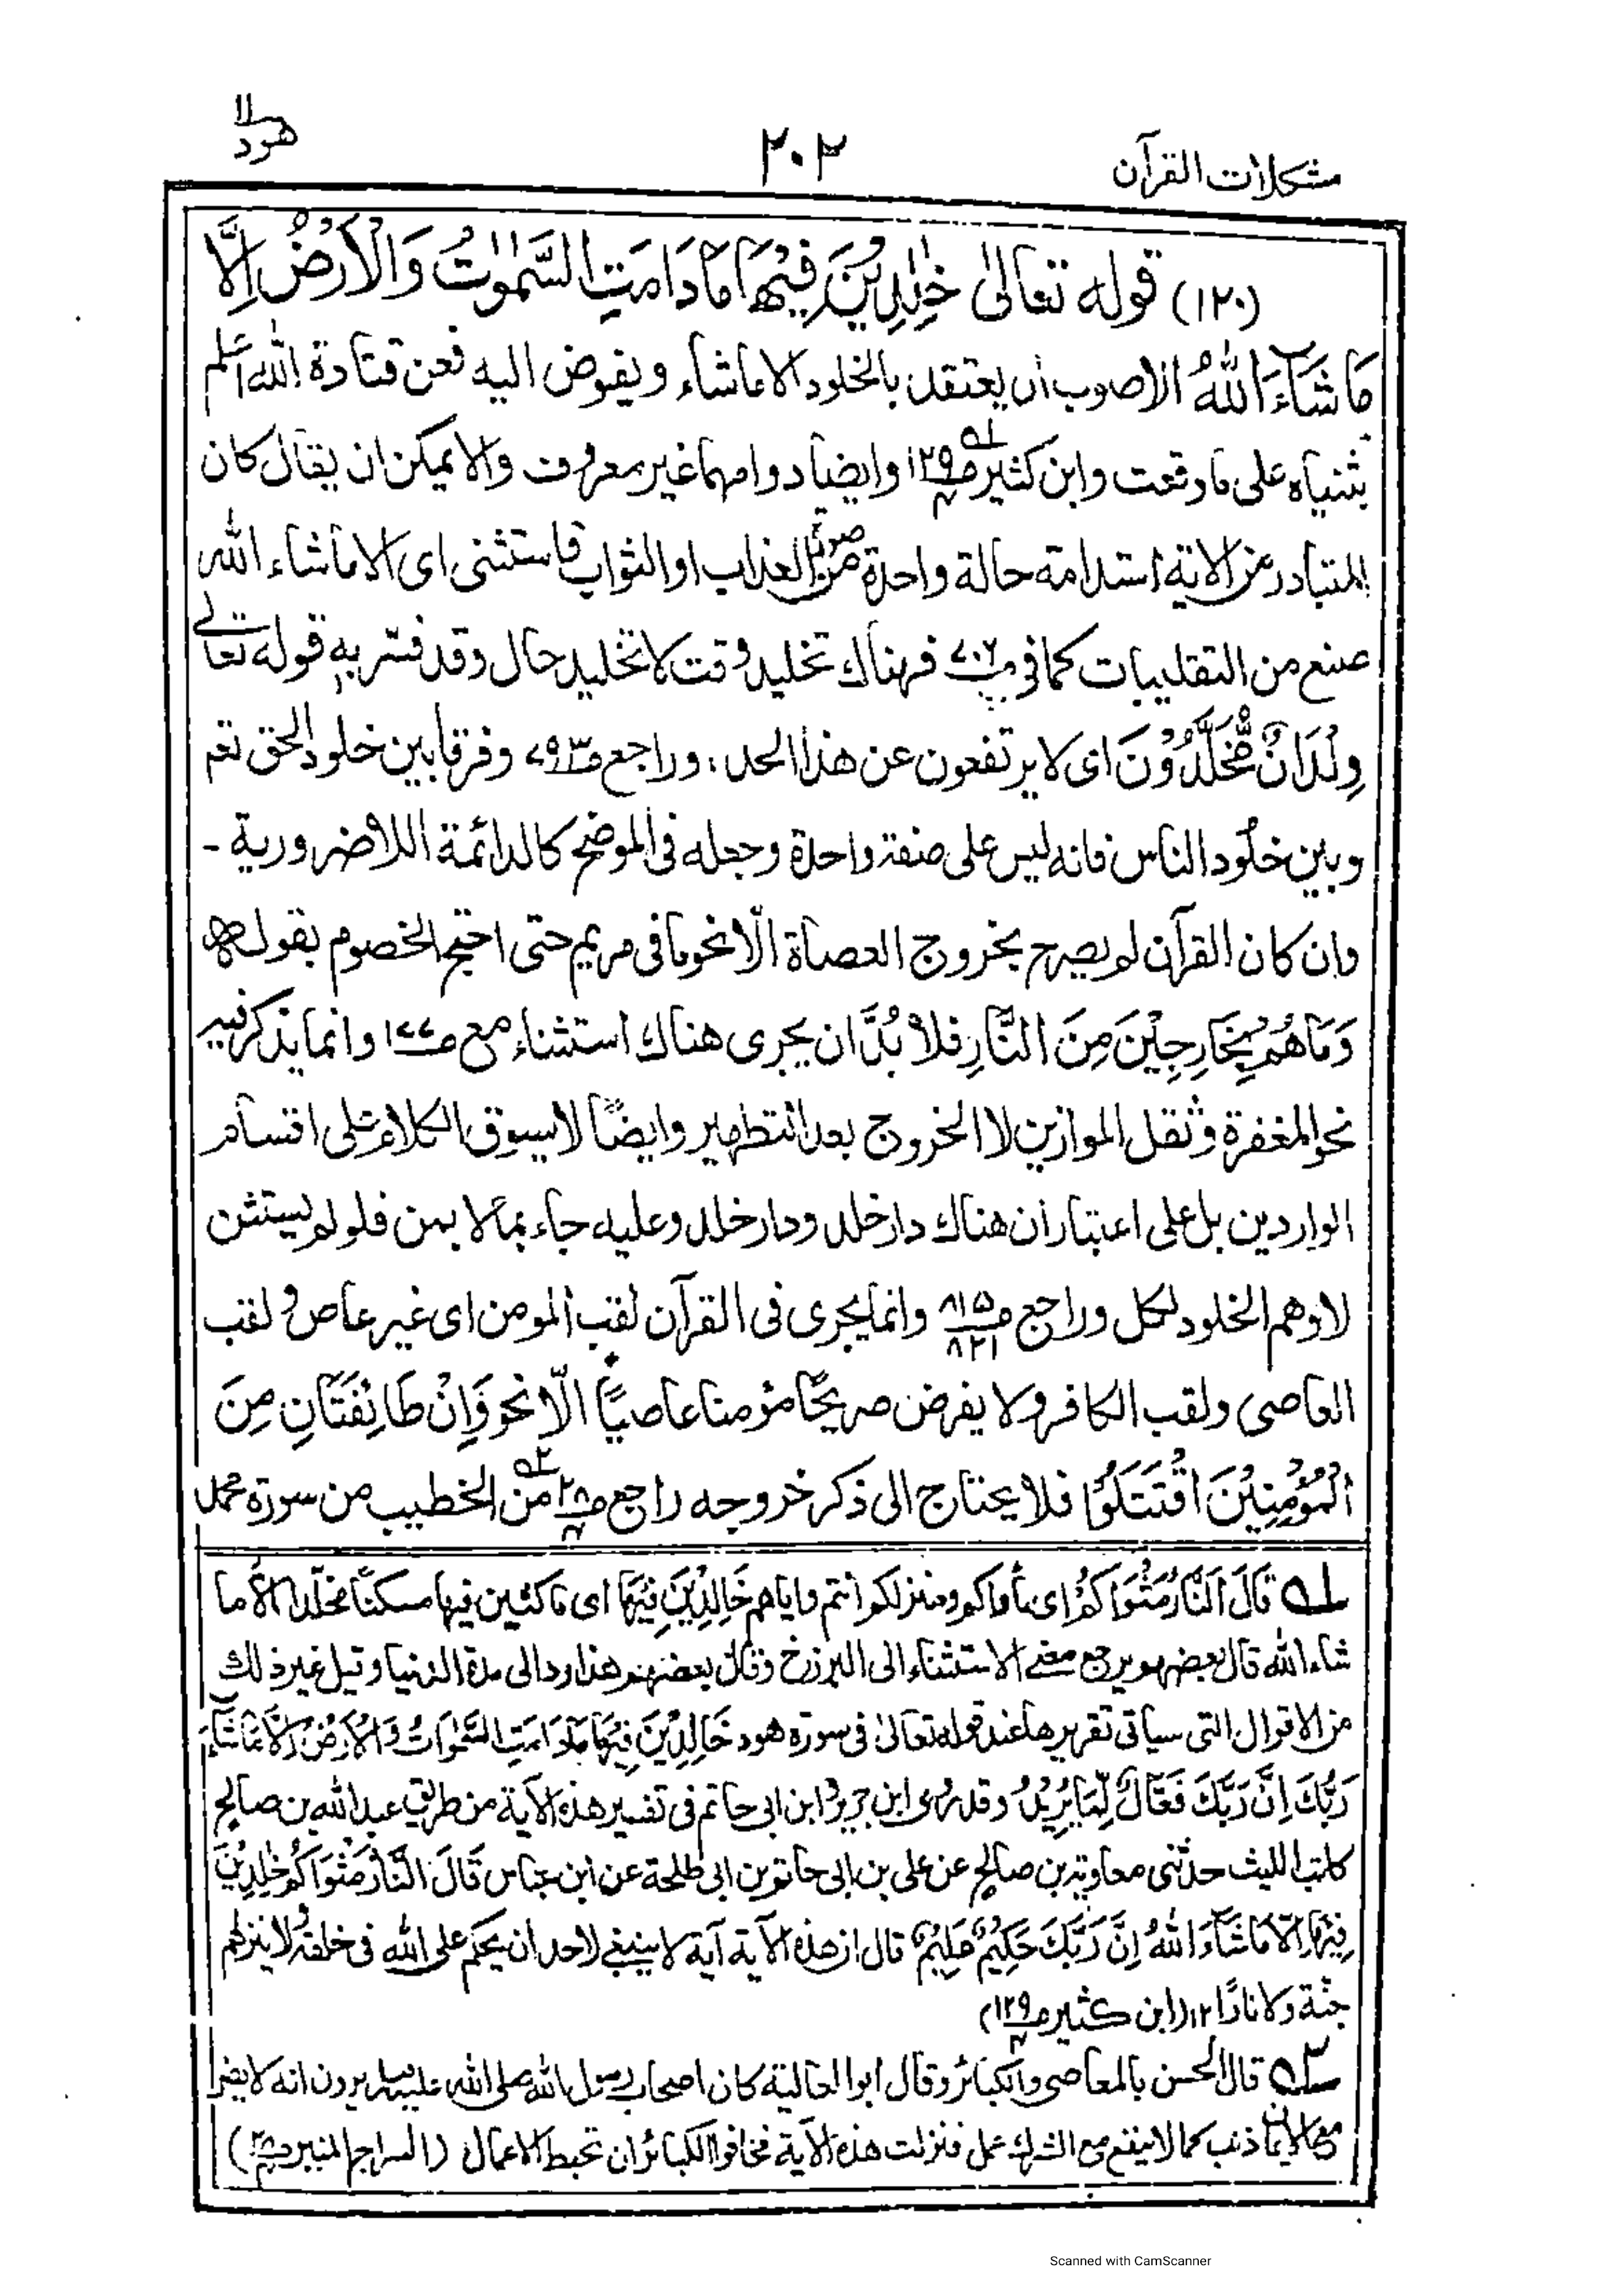 مشكلات القرآن
٢٠٢
هود ١١
(١٢٠) قوله تعالىٰ خٰلِدِيْنَ فِيْهَا مَا دَامَتِ السَّمٰوٰتُ وَالْاَرْضُ اِلَّا
مَا شَآءَ اللّٰهُ الاصوب ان يعتقد بالخلود الا ماشاء ويفوض اليه فعن قتادة الله اعلم
بثنياه على ما وقعت وابن كثير ص١٢٩ وايضا دوامهما غير معروف والا يمكن ان يقال كان
المتبادر من الاية استدامة حالة واحدة من العذاب او الثواب فاستثنى اى الا ماشاء الله
صنع من التقليبات كما فى ص٧٠٢ فهناك تخليد وقت لا تخليد حال وقد فسر به قوله تعالى
وِلْدَانٌ مُّخَلَّدُوْنَ اى لا يرتفعون عن هذا الحد، وراجع ص٧٩٣ وفرقا بين خلود الحق تعم
وبين خلود الناس فانه ليس على صفة واحدة وجعله فى الموضح كالدائمة اللاضرورية -
وان كان القرآن لم يصرح بخروج العصاة الّا نحو ما فى مريم حتى احتج الخصوم بقوله
وَمَا هُمْ بِخَارِجِيْنَ مِنَ النَّارِ فلا بُدَّ ان يجرى هناك استثناء مع ص١٧٧ وانما يذكر فيه
نحو المغفرة وثقل الموازين لا الخروج بعد التطهير وايضًا لا يسوق الكلام على اقسام
الواردين بل على اعتبار ان هناك دار خلد ودار خلد وعليه جاء بما لا بمن فلو لم يستثن
لاوهم الخلود لكل وراجع ص٨١٥ ٨٢١ وانما يجرى فى القرآن لقب المومن اى غير عاص و لقب
العاصى ولقب الكافر ولا يفرض صريحًا مؤمنا عاصيًا الّا نحو وَاِنْ طَائِفَتَانِ مِنَ
الْمُؤْمِنِيْنَ اقْتَتَلُوْا فلا يحتاج الى ذكر خروجه راجع ص٢٨ من الخطيب من سورة محمد
ـ١ـه قَالَ النَّارُ مَثْوَاكُمْ اى مأواكم ومنزلكم انتم واياهم خَالِدِيْنَ فِيْهَا اى ماكثين فيها مسكنًا مخلّدا الا ما
شاء الله قال بعضهم يرجع معنى الاستثناء الى البرزخ وقال بعضهم هذا رد الى مدة الدنيا وقيل غير ذلك
من الاقوال التى سياتى تقريرها عند قوله تعالىٰ فى سورة هود خَالِدِيْنَ فِيْهَا مَا دَامَتِ السَّمٰوَاتُ وَالْاَرْضُ اِلَّا مَا شَآءَ
رَبُّكَ اِنَّ رَبَّكَ فَعَّالٌ لِّمَا يُرِيْدُ وقد روى ابن جرير وابن ابى حاتم فى تفسير هذه الآية من طريق عبد الله بن صالح
كاتب الليث حدثنى معاوية بن صالح عن على بن ابى حاتم بن ابى طلحة عن ابن عباس قَالَ النَّارُ مَثْوَاكُمْ خٰلِدِيْنَ
فِيْهَا اِلَّا مَا شَآءَ اللّٰهُ اِنَّ رَبَّكَ حَكِيْمٌ عَلِيْمٌ قال ان هذه الآية آية لا ينبغى لاحد ان يحكم على الله فى خلقه ولا ينزلهم
جنة ولا نارًا ١٢ (ابن كثير ص١٢٩)
ـ٢ـه قال الحسن بالمعاصى والكبائر وقال ابو العالية كان اصحاب رسول الله صلى الله عليه وسلم يرون انه لا يضر
مع الايمان ذنب كما لا ينفع مع الشرك عمل فنزلت هذه الآية فخافوا الكبائر ان تحبط الاعمال (السراج المنير ص٢٨)
Scanned with CamScanner